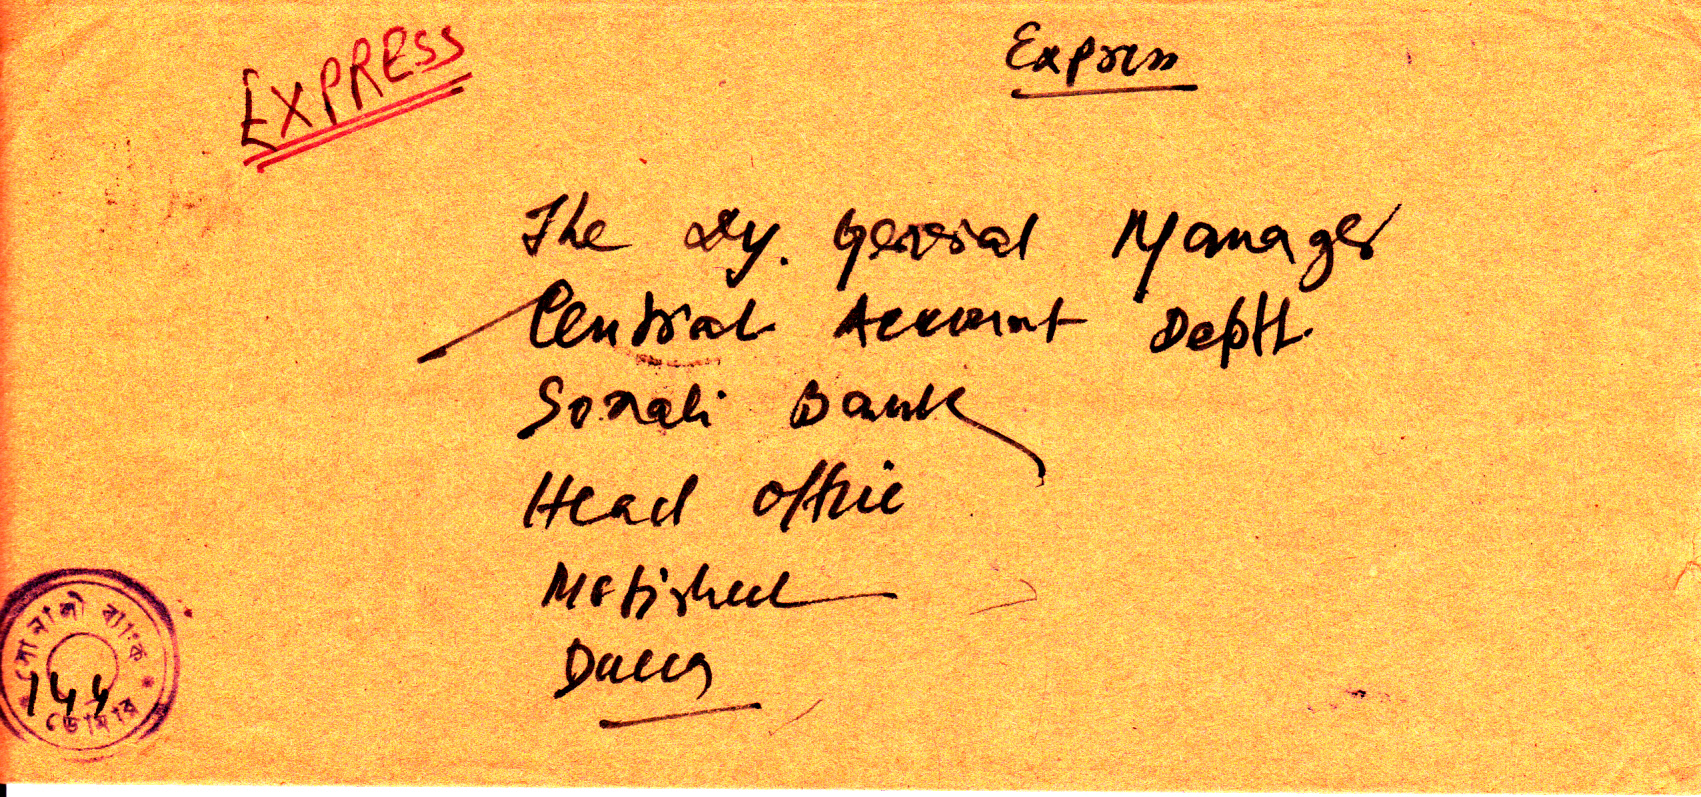 EXPRESS
Express
The Dy. General Manager
Central Account Deptt.
Sonali Bank
Head Office
Motijheel
Dacca
সোনালী ব্যাংক
ডোমার